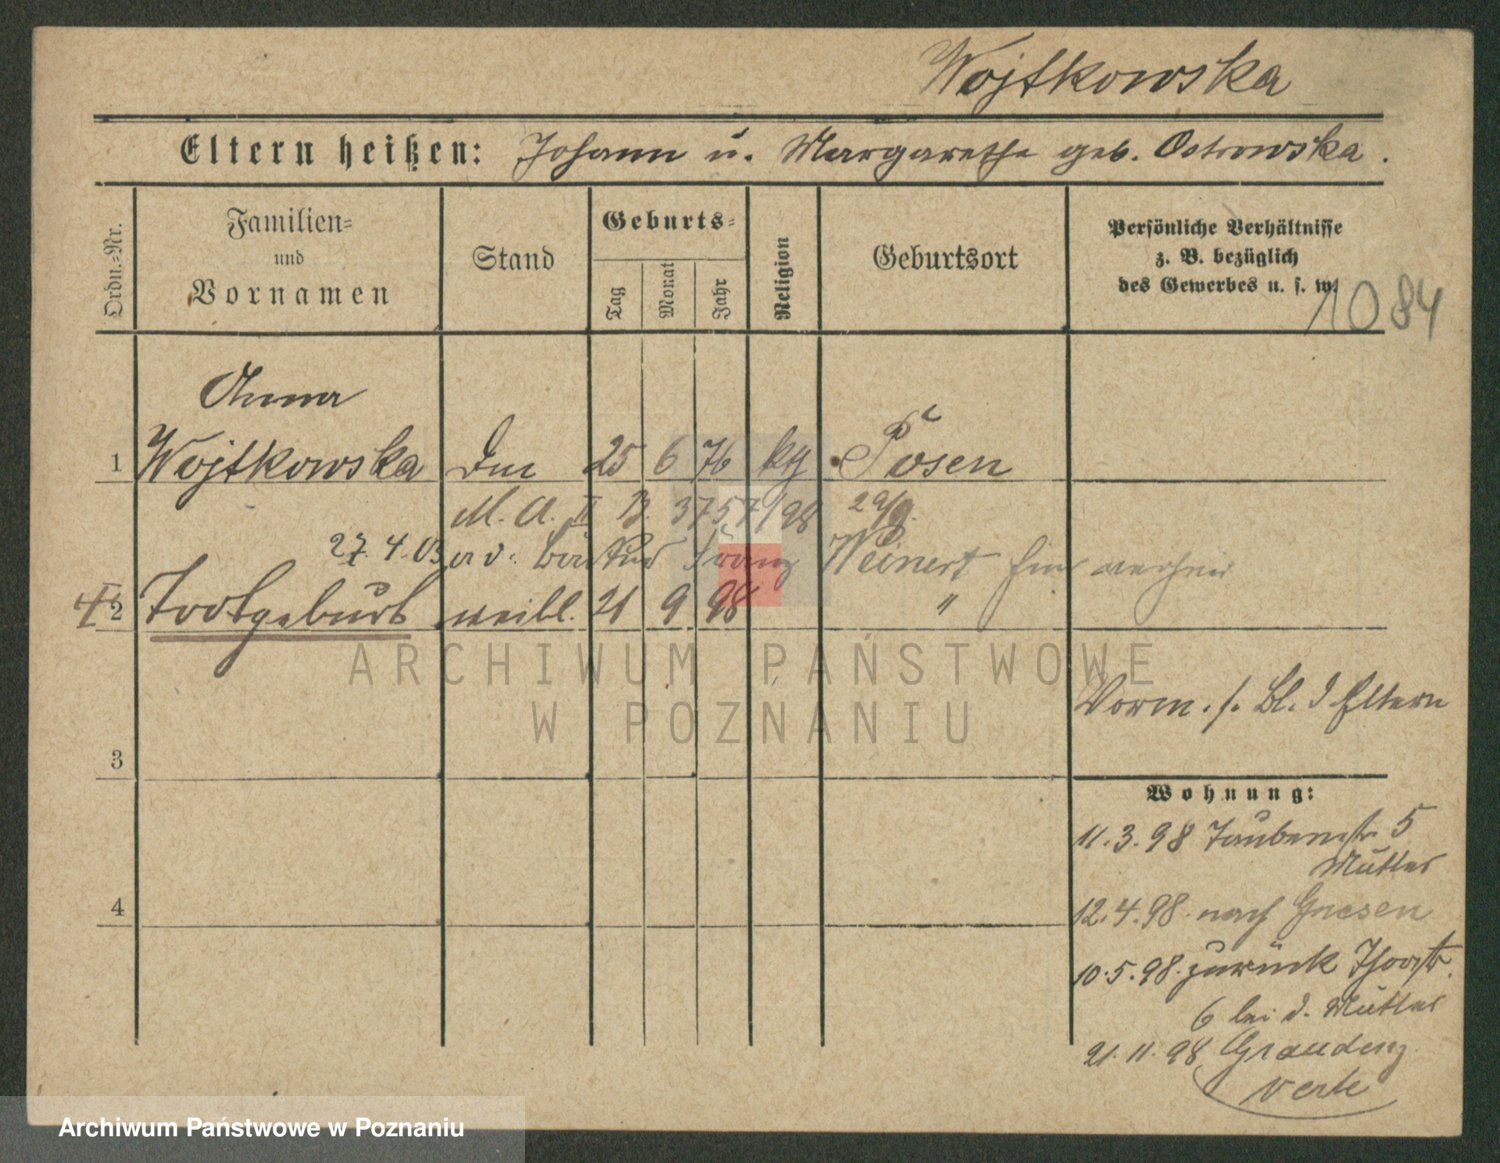 Wojtkowska
Eltern heißen: Johann u. Margarethe geb. Ostrowska.
Ordn.-Nr.
Familien-
und
Vornamen
Stand
Geburts-
Tag
Monat
Jahr
Religion
Geburtsort
Persönliche Verhältnisse
z. B. bezüglich
des Gewerbes u. s. w.
1084
Anna
1 Wojtkowska 25 6 76 Posen
M. A. II B. 3757/98 29/9.
27. 4. 03 Franz Weinert
2 Todtgeburt weibl. 21 9 98 "
Vorm. s. Bl. d Eltern
3
Wohnung:
11.3.98 Taubenstr. 5
Mutter
4
12.4.98. nach Gnesen
10.5.98. zurück Thorstr.
6 bei d. Mutter
21.11.98 Graudenz
verte
ARCHIWUM PAŃSTWOWE
W POZNANIU
Archiwum Państwowe w Poznaniu